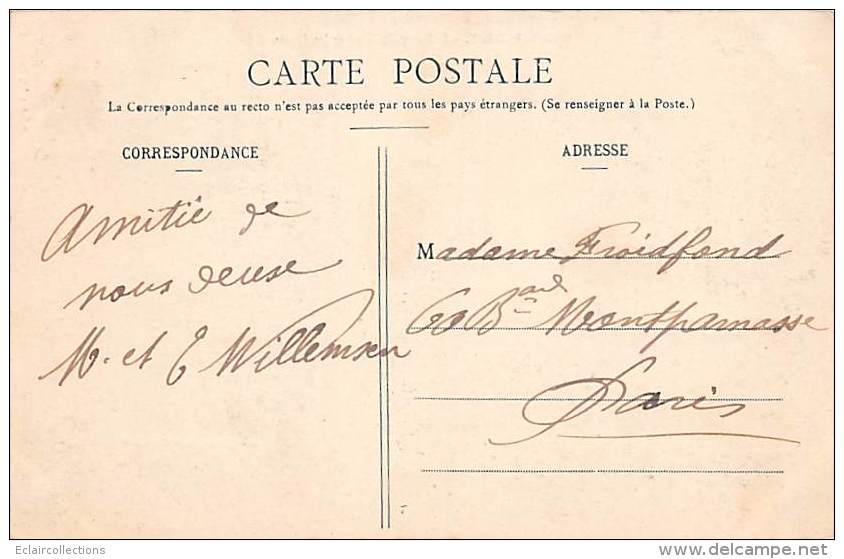 CARTE POSTALE
La Correspondance au recto n'est pas acceptée par tous les pays étrangers. (Se renseigner à la Poste.)
CORRESPONDANCE
Amitié de
nous deuse
M. et E Willemsen
ADRESSE
Madame Froidfond
60 Bard Montparnasse
Paris
Eclaircollections
delcampe.net